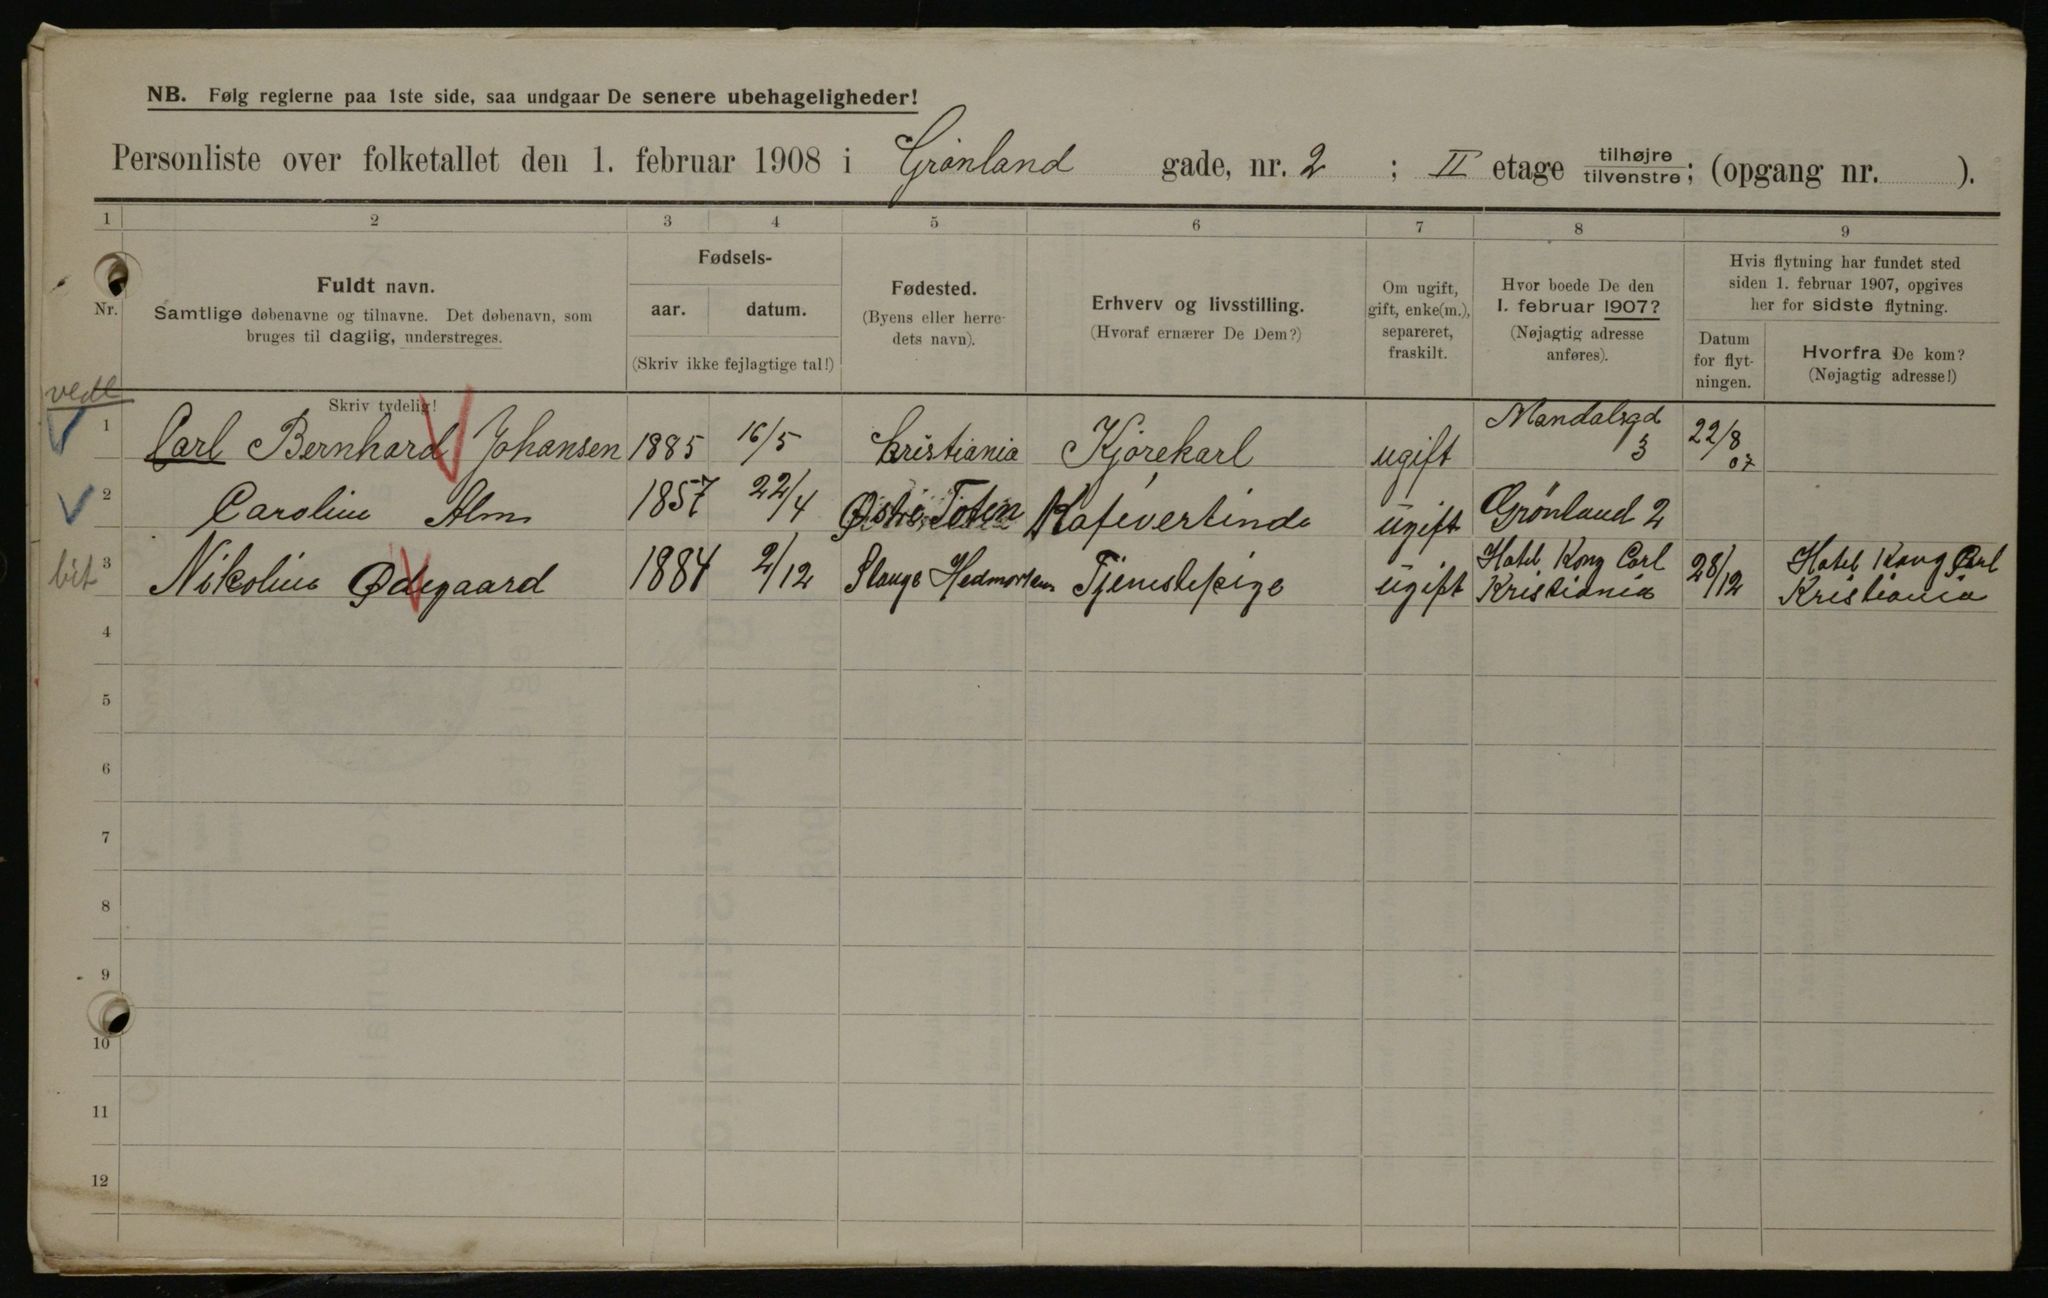 NB. Følg reglerne paa 1ste side, saa undgaar De senere ubehageligheder!
Personliste over folketallet den 1. februar 1908 i Grønland gade, nr. 2 ; II etage tilhøjre tilvenstre; (opgang nr. ).
1 2 3 4 5 6 7 8 9
Nr.
Fuldt navn.
Samtlige døbenavne og tilnavne. Det døbenavn, som
bruges til daglig, understreges.
Skriv tydelig!
Fødsels-
aar. datum.
(Skriv ikke fejlagtige tal!)
Fødested.
(Byens eller herre-
dets navn).
Erhverv og livsstilling.
(Hvoraf ernærer De Dem?)
Om ugift,
gift, enke(m.),
separeret,
fraskilt.
Hvor boede De den
1. februar 1907?
(Nøjagtig adresse
anføres).
Hvis flytning har fundet sted
siden 1. februar 1907, opgives
her for sidste flytning.
Datum
for flyt-
ningen.
Hvorfra De kom?
(Nøjagtig adresse!)
1 Carl Bernhard Johansen 1885 16/5 Kristiania Kjørekarl ugift Mandalsgd 3 22/8 07
2 Caroline Alm 1857 22/4 Østre Toten Kafevertinde ugift Grönland 2
3 Nikoline Ødegaard 1884 2/12 Stange Hedmarken Tjenestepige ugift Hotel Kong Carl Kristiania 28/12 Hotel Kong Carl Kristiania
4
5
6
7
8
9
10
11
12